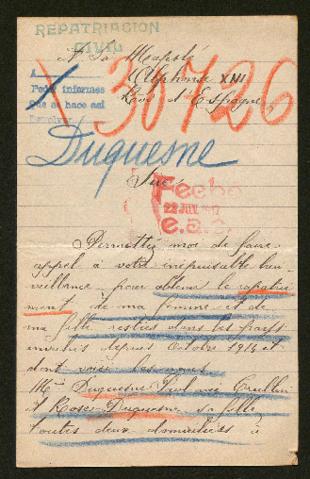 REPATRIACION
CIVIL
A Sa Majesté
Alphonse XIII
A
Pedir informes
Que se hace así
Devolver
30726
Roi d'Espagne
Duquesne
Sire
Fecho
23 JUL 1917
e.a.c.
Permettez moi de faire
appel à votre inépuisable bien
veillance pour obtenir le rapatrie
ment de ma femme et de
ma fille restées dans les pays
envahis depuis Octobre 1914 et
dont voici les noms
Mme Duquesne
et Rose Duquesne sa fille
toutes deux domiciliées à